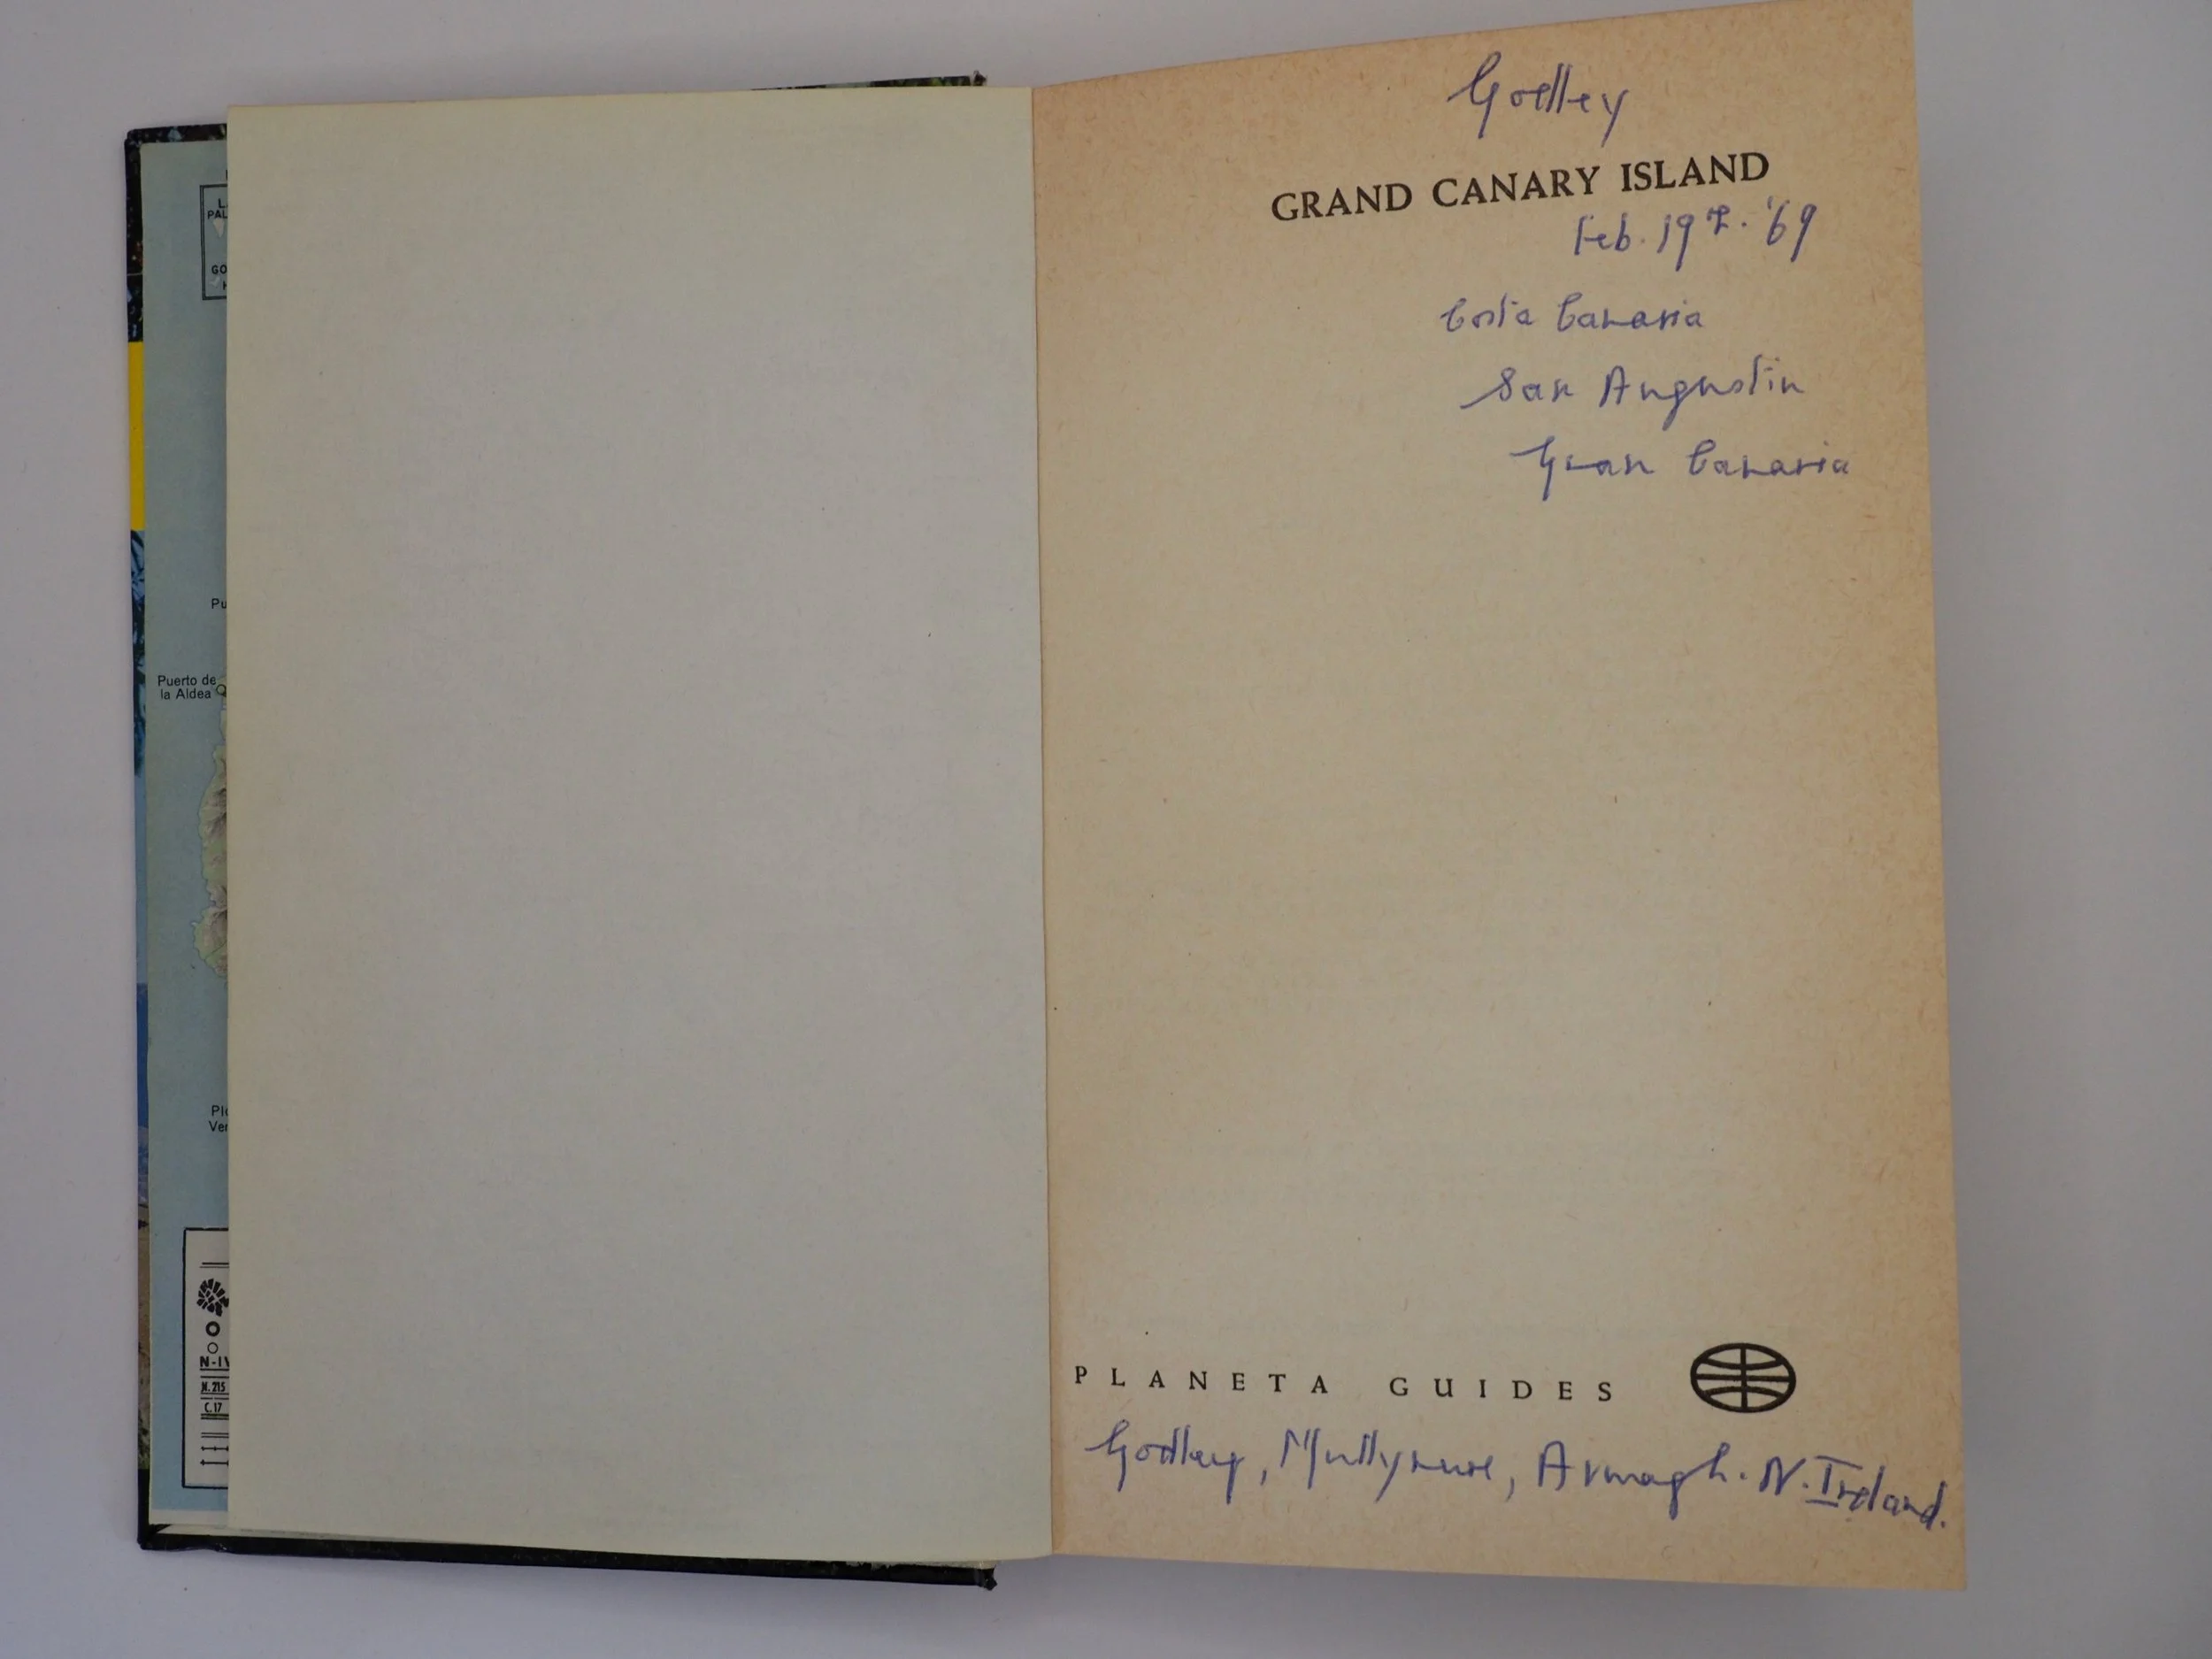 Puerto de
la Aldea
N-IV
N.215
C.17
Godley
GRAND CANARY ISLAND
Feb. 19th. '69
Costa Canaria
San Augustin
Gran Canaria
PLANETA GUIDES
Godley, Mullynure, Armagh. N. Ireland.